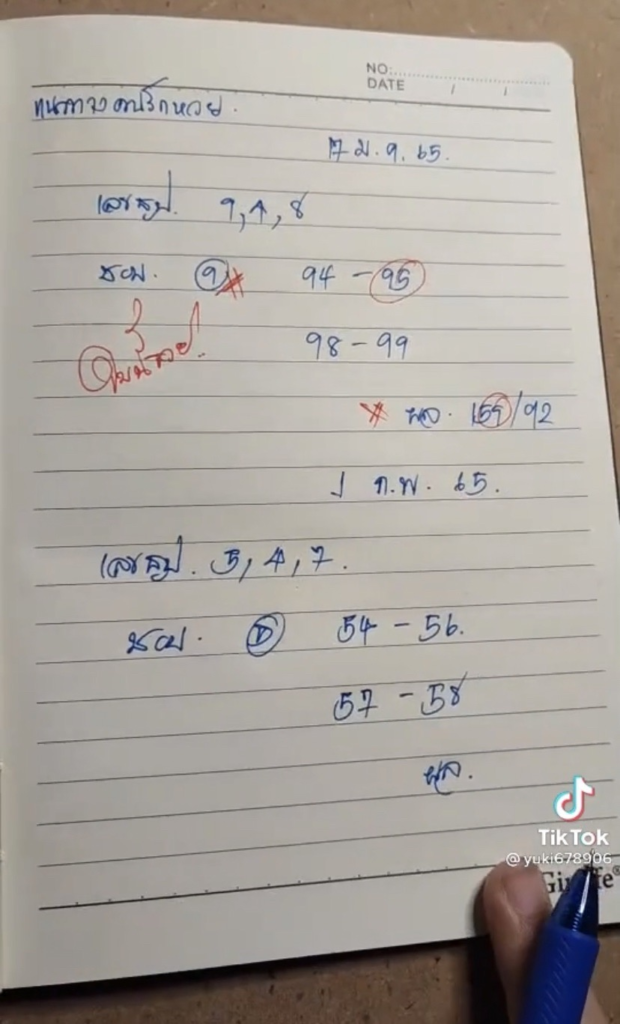 NO:
DATE / /
แนวทางคนรักหวย.
17 ม.ค. 65.
เลขธูป. 9, 4, 8
ชอบ. 9 94 - 95
98 - 99
ผล. 159/92
1 ก.พ. 65.
เลขธูป. 5, 4, 7.
ชอบ. 5 54 - 56.
57 - 58
ผล.
TikTok
@yuki678906
Giraffe®